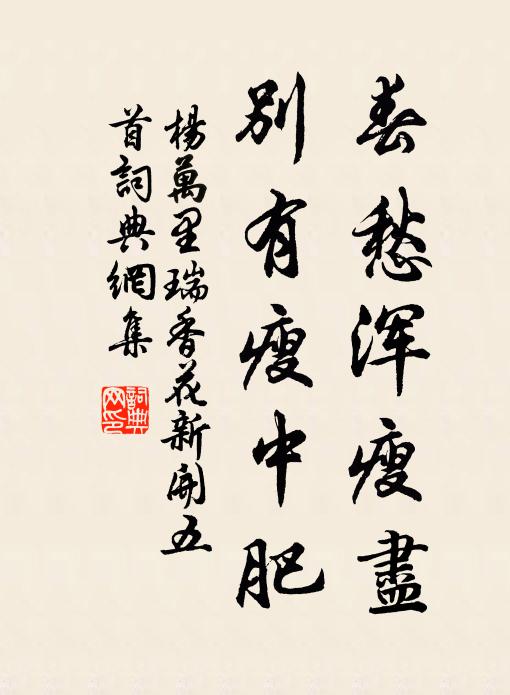 春愁浑瘦盡
別有瘦中肥
楊萬里瑞香花新開五
首詞典網集
詞典
网印